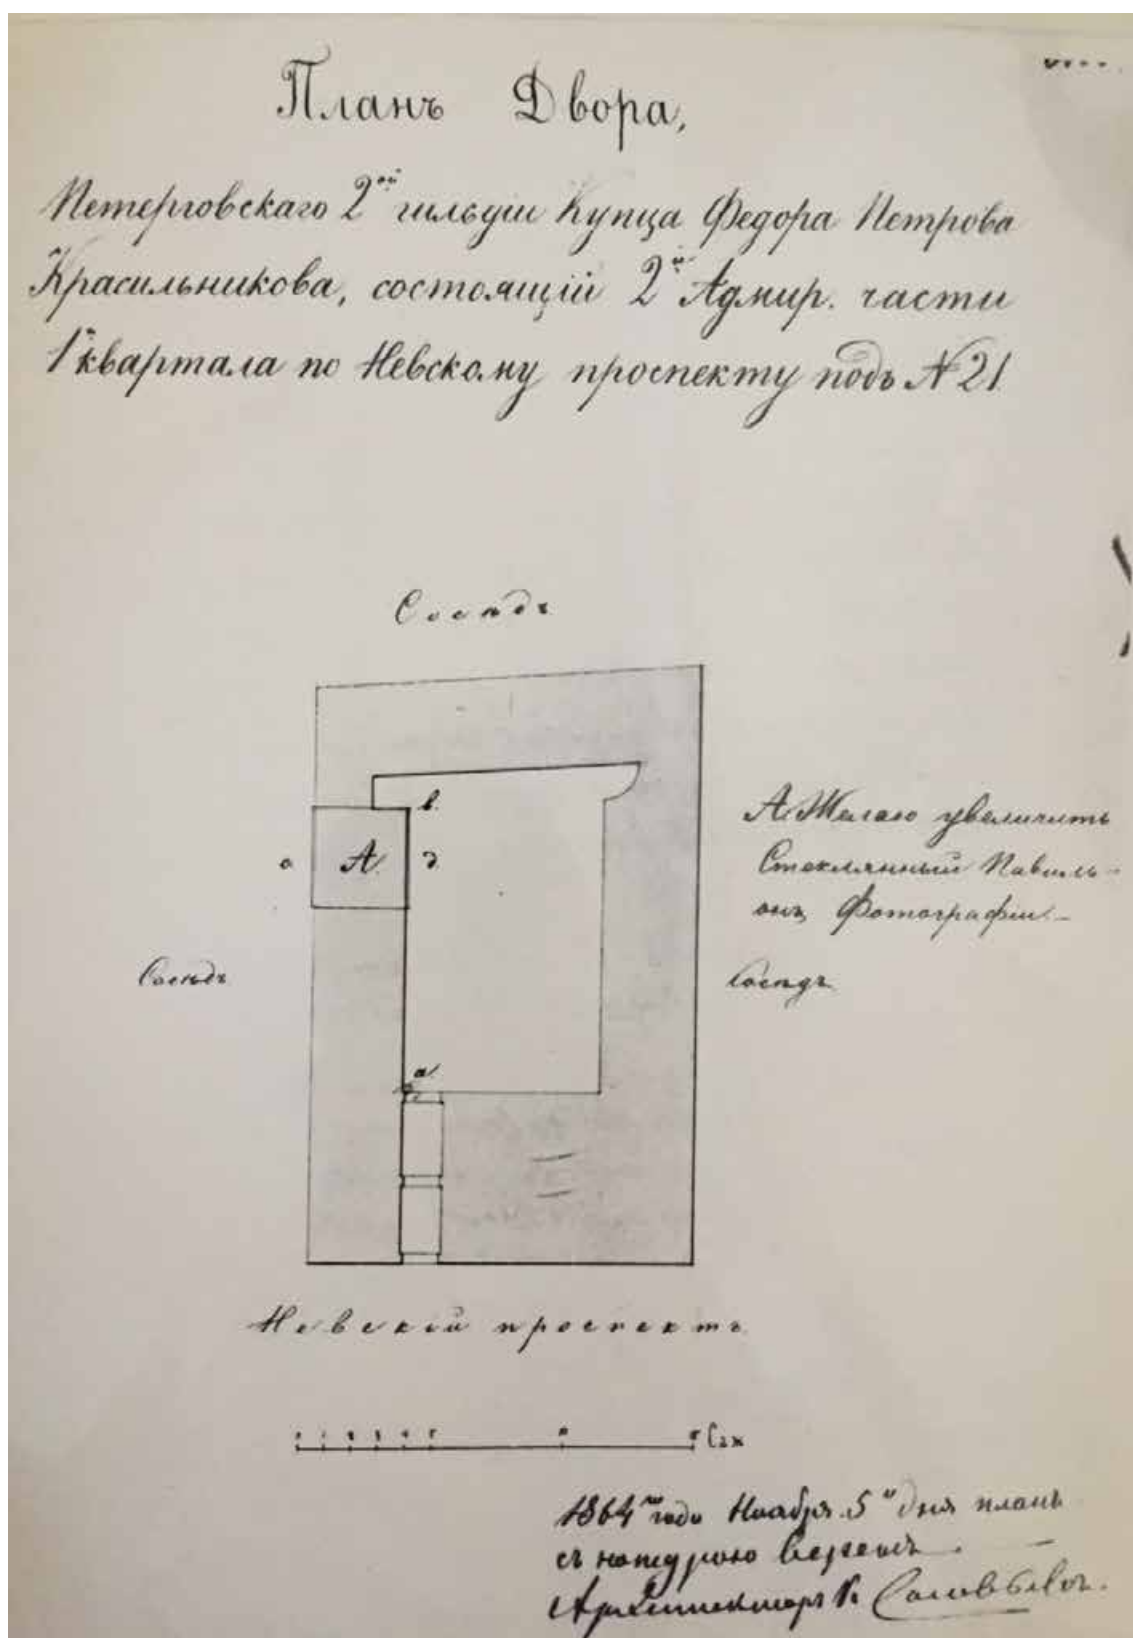 Планъ Двора,
Петерговскаго 2ой гильдіи Купца Федора Петрова
Красильникова, состоящій 2й Адмир. части
1й квартала по Невскому проспекту подъ № 21
Сосѣдъ
в.
А. Желаю увеличить
с А. д
Стеклянный Павиль-
онъ Фотографіи.-
Сосѣдъ
Сосѣдъ
а.
Невскій проспектъ
Саж
1864го года Ноября 5го дня планъ
съ натурою веренъ.
Архитекторъ Соловьевъ.